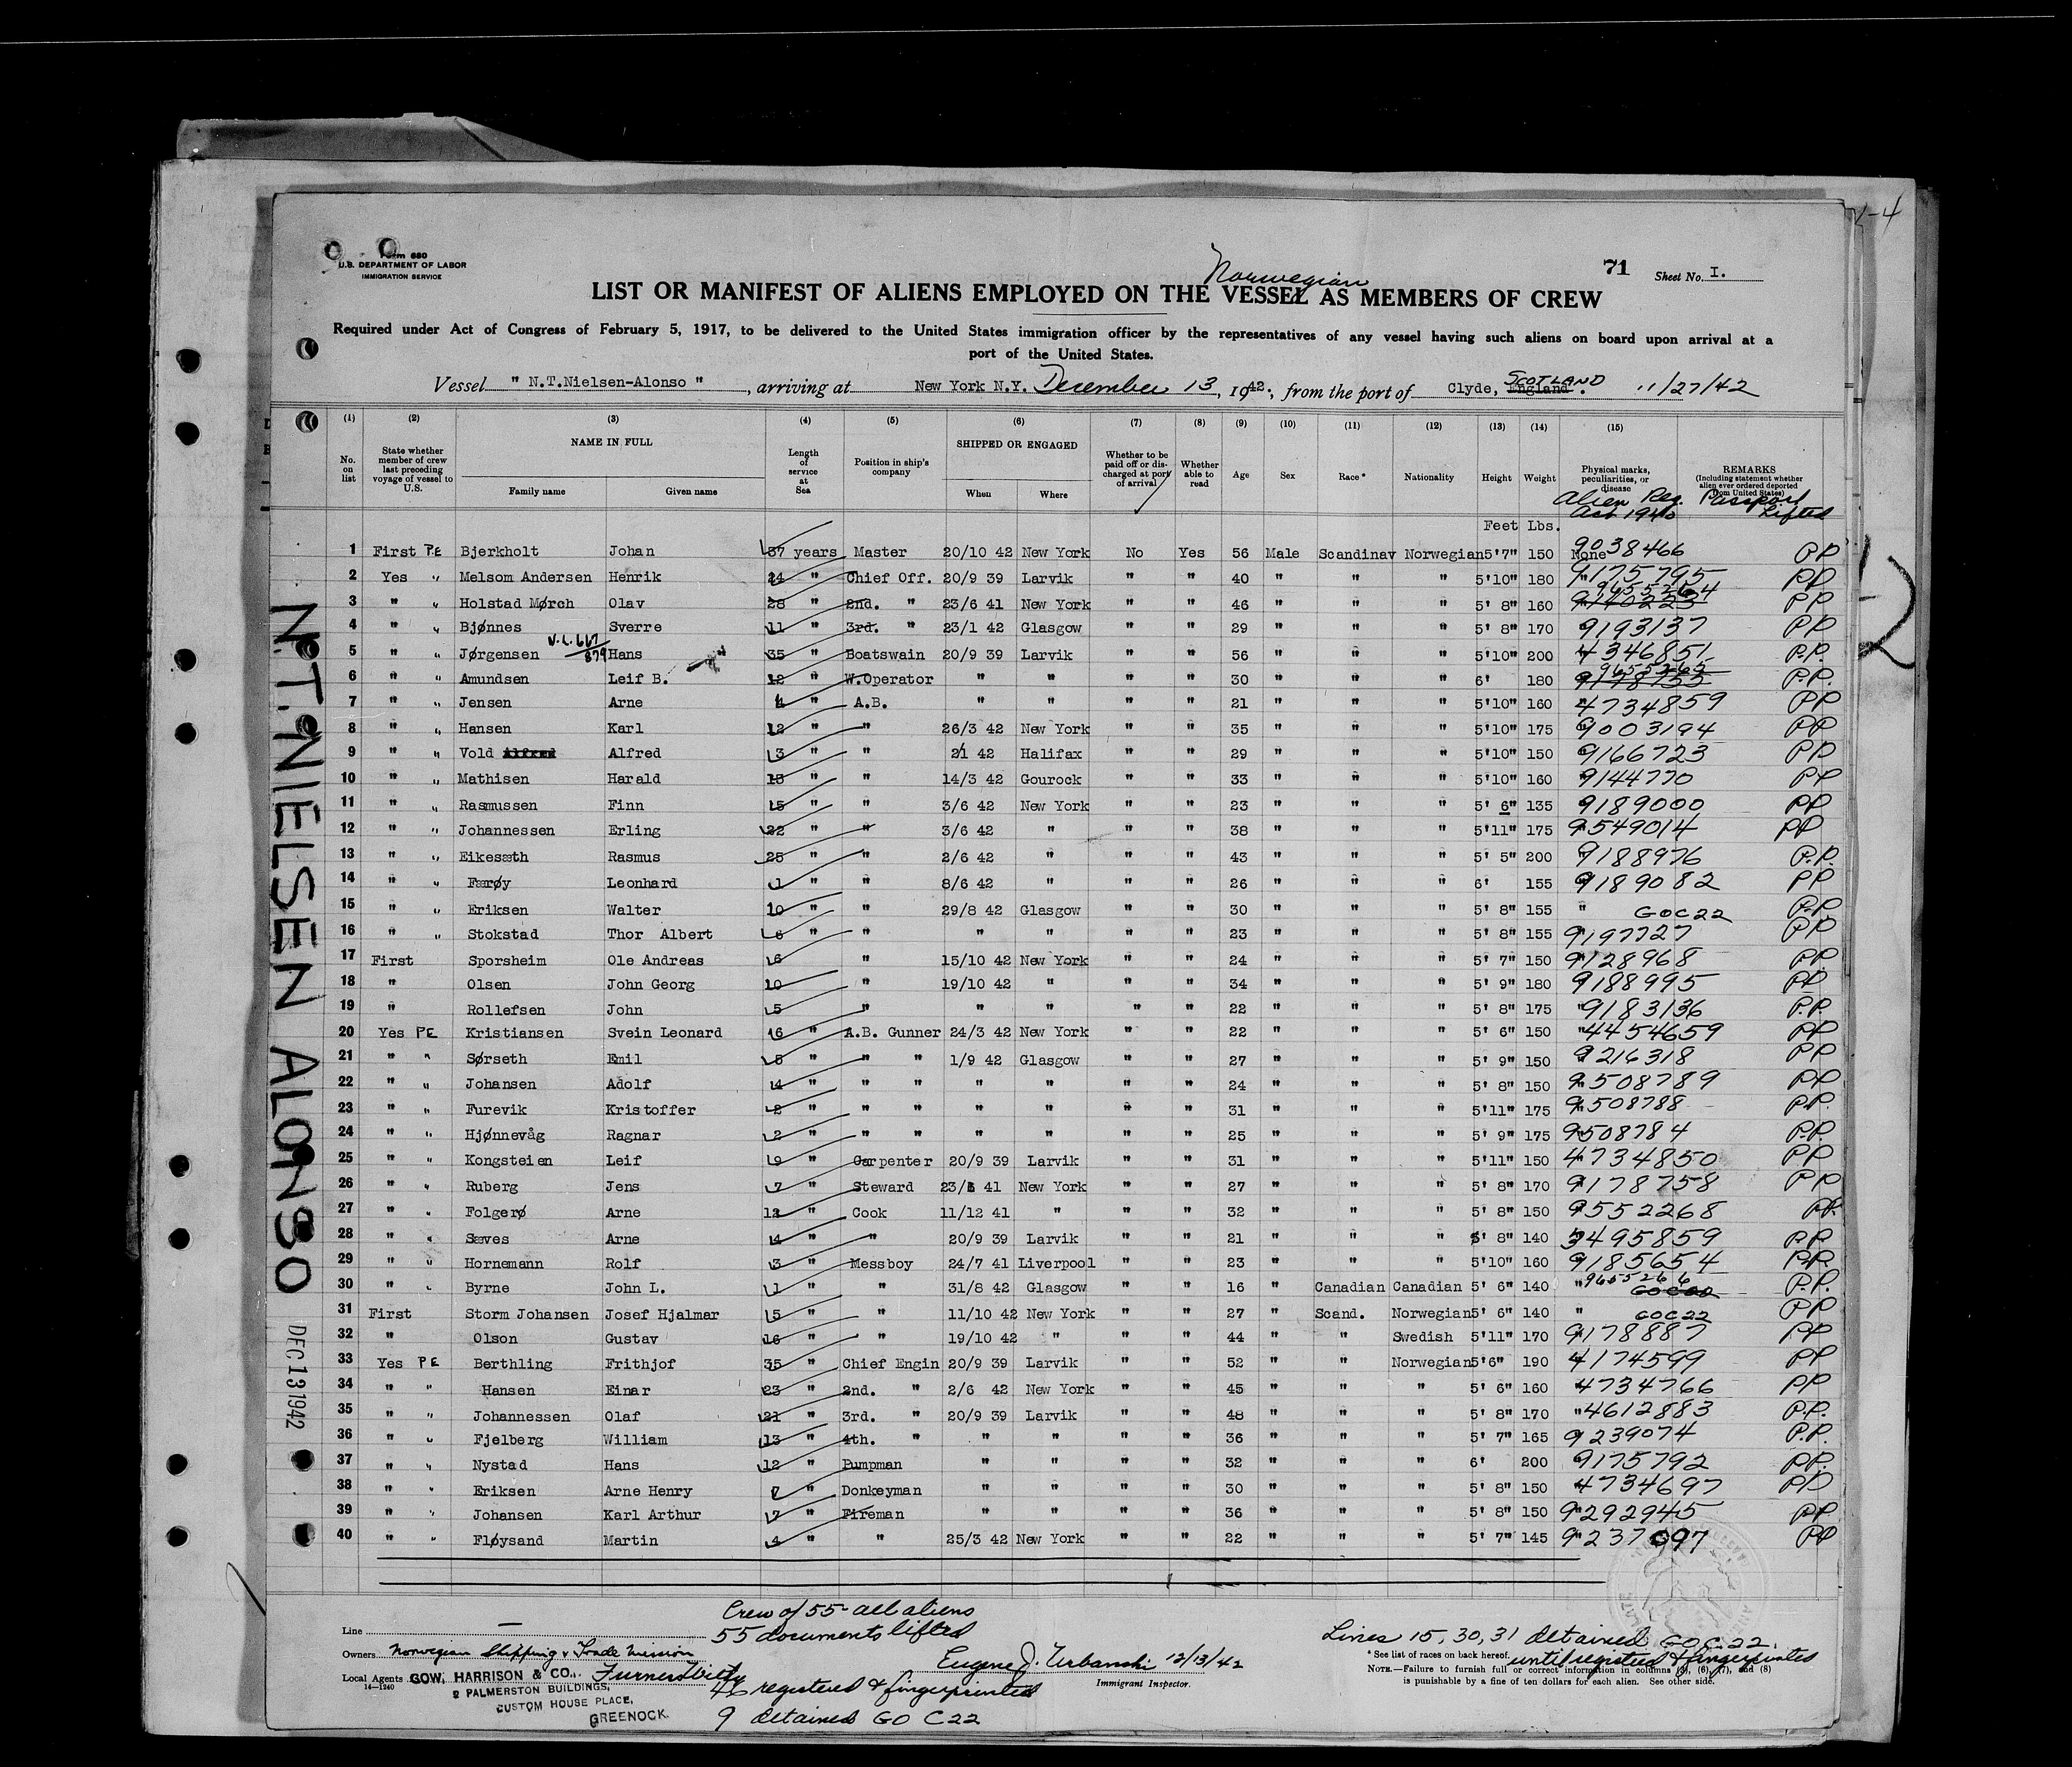 1-4
Form 680
U.S. DEPARTMENT OF LABOR
IMMIGRATION SERVICE
71 Sheet No. I.
Norwegian
LIST OR MANIFEST OF ALIENS EMPLOYED ON THE VESSEL AS MEMBERS OF CREW
Required under Act of Congress of February 5, 1917, to be delivered to the United States immigration officer by the representatives of any vessel having such aliens on board upon arrival at a
port of the United States.
Vessel " N.T.Nielsen-Alonso ", arriving at New York N.Y. December 13, 1942., from the port of Clyde, England. SCOTLAND 11/27/42
(1) (2) (3) (4) (5) (6) (7) (8) (9) (10) (11) (12) (13) (14) (15)
No. on list | State whether member of crew last preceding voyage of vessel to U.S. | NAME IN FULL Family name Given name | Length of service at Sea | Position in ship's company | SHIPPED OR ENGAGED When Where | Whether to be paid off or discharged at port of arrival | Whether able to read | Age | Sex | Race* | Nationality | Height | Weight | Physical marks, peculiarities, or disease | REMARKS (Including statement whether alien ever ordered deported from United States)
Alien Reg. Act 1940 Passport Lifted
Feet Lbs.
1 First PE Bjerkholt Johan 37 years Master 20/10 42 New York No Yes 56 Male Scandinav Norwegian 5'7" 150 None 9038466 PP
2 Yes " Melsom Andersen Henrik 24 " Chief Off. 20/9 39 Larvik " " 40 " " " 5'10" 180 " 4175795 PP
3 " " Holstad Mørch Olav 28 " 2nd. " 23/6 41 New York " " 46 " " " 5' 8" 160 9655264 9140223 PP
4 " " Bjønnes Sverre 11 " 3rd. " 23/1 42 Glasgow " " 29 " " " 5' 8" 170 9193137 PP
5 " " Jørgensen V.L. 617/879 Hans 35 " Boatswain 20/9 39 Larvik " " 56 " " " 5'10" 200 4346851 P.P.
6 " " Amundsen Leif B. 12 " W.Operator " " " " 30 " " " 6' 180 9655265 9178755 P.P.
7 " " Jensen Arne 4 " A.B. " " " " 21 " " " 5'10" 160 4734859 PP
8 " " Hansen Karl 12 " " 26/3 42 New York " " 35 " " " 5'10" 175 9003194 PP
9 " " Vold Alfred Alfred 3 " " 21 42 Halifax " " 29 " " " 5'10" 150 9166723 PP
10 " " Mathisen Harald 18 " " 14/3 42 Gourock " " 33 " " " 5'10" 160 9144770 PP
11 " " Rasmussen Finn 15 " " 3/6 42 New York " " 23 " " " 5' 6" 135 9189000 PP
12 " " Johannessen Erling 22 " " 3/6 42 " " " 38 " " " 5'11" 175 9549014 PP
13 " " Eikesæth Rasmus 25 " " 2/6 42 " " " 43 " " " 5' 5" 200 9188976 P.P.
14 " " Færøy Leonhard 1 " " 8/6 42 " " " 26 " " " 6' 155 9189082 PP
15 " " Eriksen Walter 10 " " 29/8 42 Glasgow " " 30 " " " 5' 8" 155 " GOC22 P.P.
16 " " Stokstad Thor Albert 6 " " " " " " 23 " " " 5' 8" 155 9197727 PP
17 First Sporsheim Ole Andreas 6 " 15/10 42 New York " " 24 " " " 5' 7" 150 9128968 PP.
18 " Olsen John Georg 10 " 19/10 42 " " " 34 " " " 5' 9" 180 9188995 PP
19 " Rollefsen John 5 " " " " " 22 " " " 5' 8" 175 " 9183136 P.P.
20 Yes PE Kristiansen Svein Leonard 6 " A.B. Gunner 24/3 42 New York " " 22 " " " 5' 6" 150 " 4454659 PP
21 " " Sørseth Emil 5 " " " 1/9 42 Glasgow " " 27 " " " 5' 9" 150 9216318 PP
22 " " Johansen Adolf 4 " " " " " " " 24 " " " 5' 8" 150 9508789 PP
23 " " Furevik Kristoffer 2 " " " " " " " 31 " " " 5'11" 175 9508788 PP.
24 " " Hjønnevåg Ragnar 2 " " " " " " " 25 " " " 5' 9" 175 9508784 P.P.
25 " " Kongsteien Leif 9 " Carpenter 20/9 39 Larvik " " 31 " " " 5'11" 150 4734850 PP
26 " " Ruberg Jens 7 " Steward 23/6 41 New York " " 27 " " " 5' 8" 170 9178758 PP
27 " " Folgerø Arne 12 " Cook 11/12 41 " " " 32 " " " 5' 8" 150 9552268 PP.
28 " " Sæves Arne 4 " " 20/9 39 Larvik " " 21 " " " 5' 8" 140 3495859 PP
29 " " Hornemann Rolf 3 " Messboy 24/7 41 Liverpool " " 23 " " " 5'10" 160 9185654 PP.
30 " " Byrne John L. 1 " " 31/8 42 Glasgow " " 16 " Canadian Canadian 5' 6" 140 " 9655266 GOC22 P.P.
31 First Storm Johansen Josef Hjalmar 5 " " 11/10 42 New York " " 27 " Scand. Norwegian 5' 6" 140 " GOC22 PP
32 " Olson Gustav 16 " " 19/10 42 " " " 44 " " Swedish 5'11" 170 9178887 PP
33 Yes PE Berthling Frithjof 35 " Chief Engin 20/9 39 Larvik " " 52 " " Norwegian 5'6" 190 4174599 PP
34 " " Hansen Einar 23 " 2nd. " 2/6 42 New York " " 45 " " " 5' 6" 160 4734766 PP
35 " " Johannessen Olaf 21 " 3rd. " 20/9 39 Larvik " " 48 " " " 5' 8" 170 " 4612883 P.P.
36 " " Fjelberg William 13 " 4th. " " " " " 36 " " " 5' 7" 165 9239074 P.P.
37 " " Nystad Hans 12 " Pumpman " " " " 32 " " " 6' 200 9175792 PP.
38 " " Eriksen Arne Henry 7 " Donkeyman " " " " 30 " " " 5' 8" 150 4734697 PP
39 " " Johansen Karl Arthur 7 " Fireman " " " " 36 " " " 5' 8" 150 9292945 PP
40 " " Fløysand Martin 4 " " 25/3 42 New York " " 22 " " " 5' 7" 145 9237097 PP
N.T. NIELSEN ALONSO
DEC 13 1942
Crew of 55 - all aliens
55 documents lifted
Line —
Owners Norwegian Shipping & Trade Mission
Local Agents GOW, HARRISON & CO., Furness Withy
14-1240
2 PALMERSTON BUILDINGS,
CUSTOM HOUSE PLACE,
GREENOCK.
46 registered & fingerprinted
9 detained GO C22
Eugene J. Urbanski 12/13/42
Immigrant Inspector.
Lines 15, 30, 31 detained GO C 22.
until registered & fingerprinted
* See list of races on back hereof.
NOTE.—Failure to furnish full or correct information in columns (3), (6), (7), and (8)
is punishable by a fine of ten dollars for each alien. See other side.